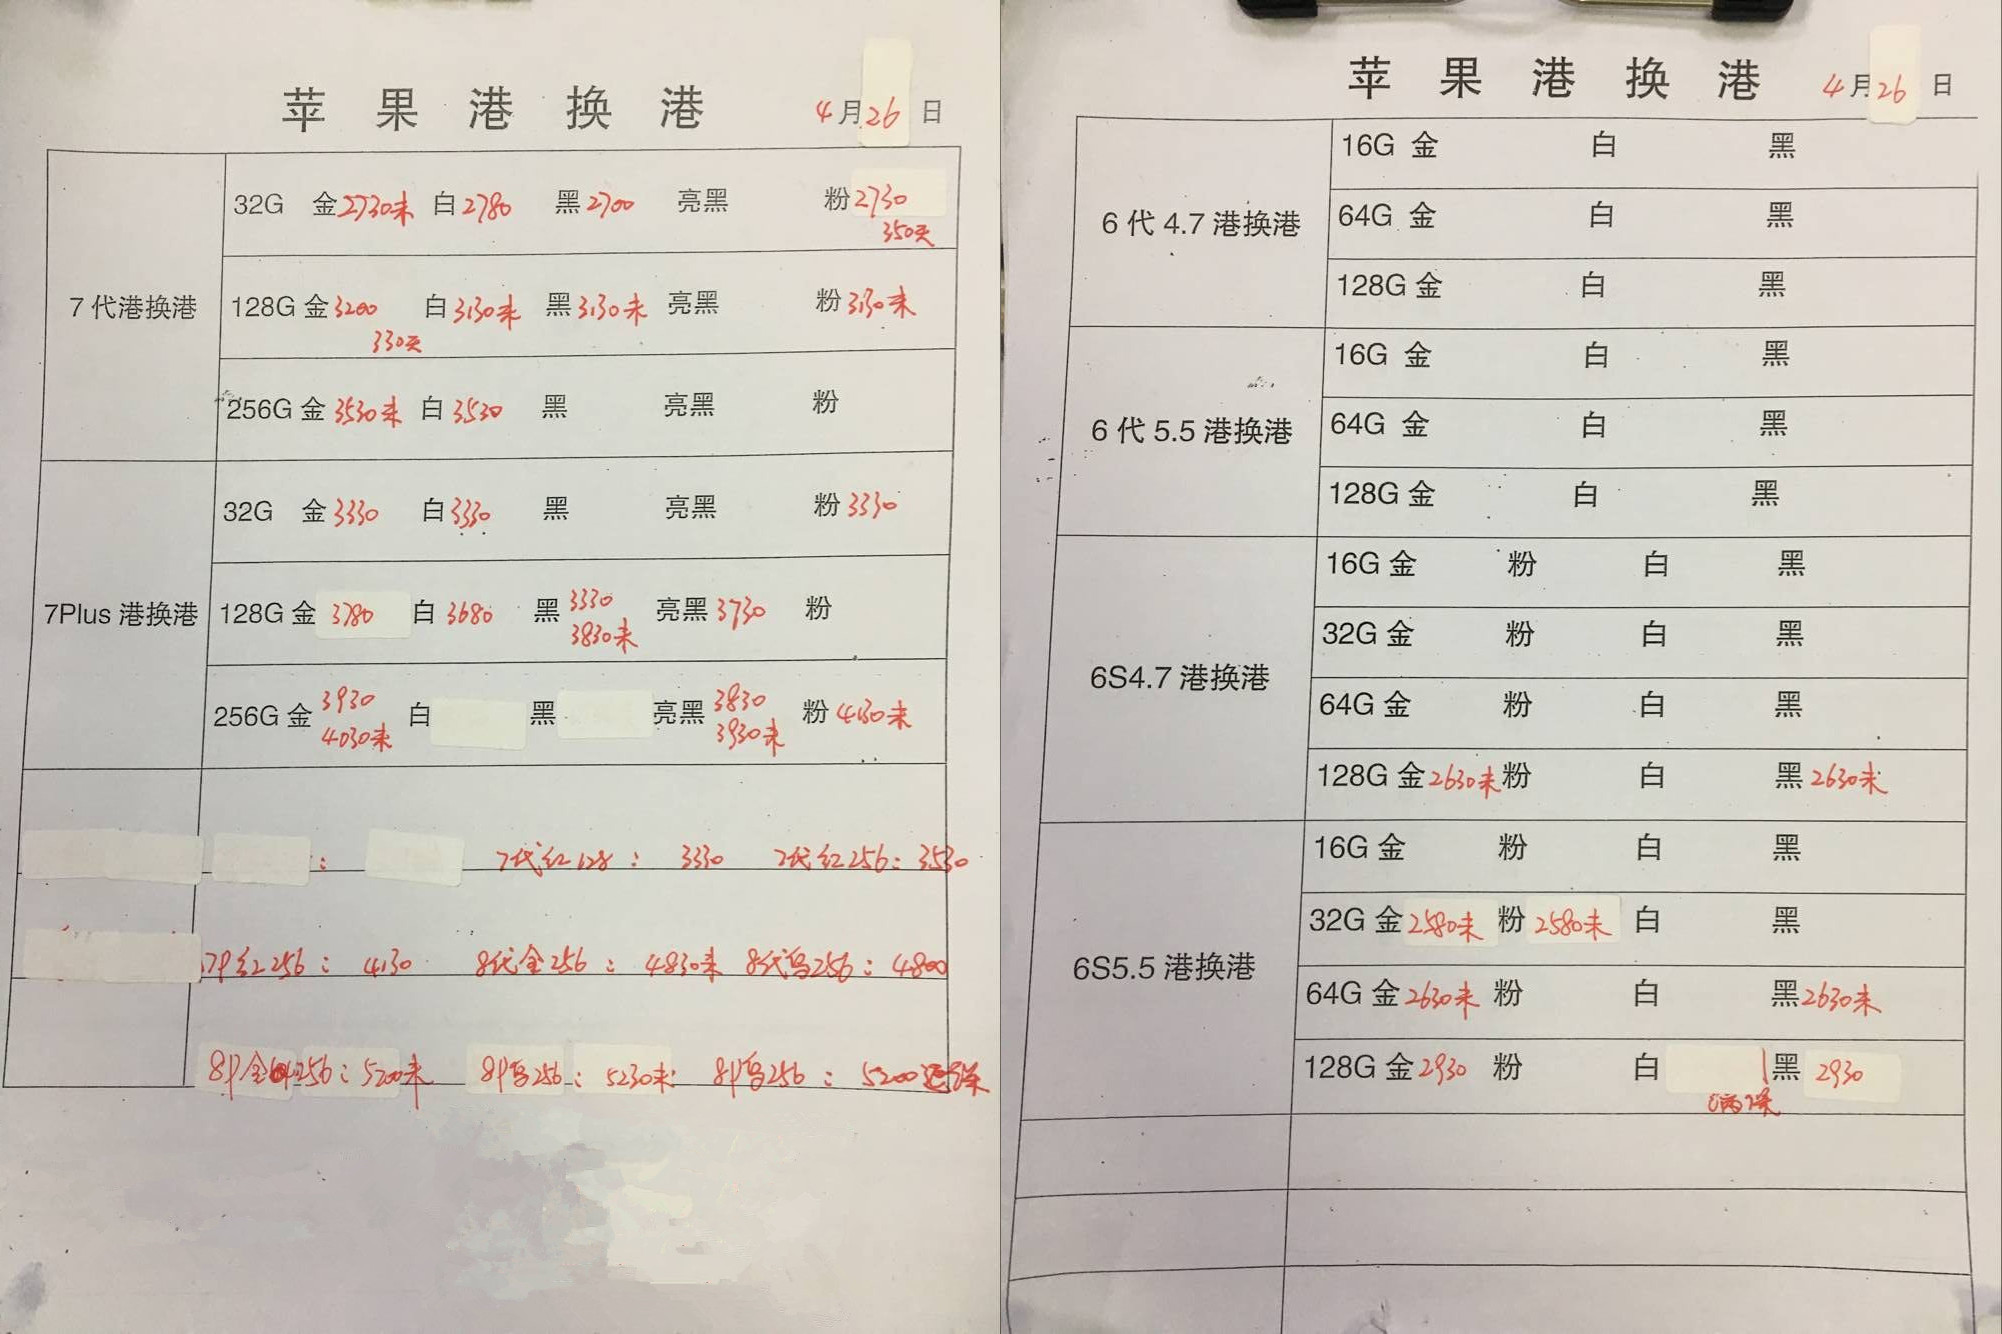 苹果港换港 4月26日
32G 金2730未 白2780 黑2700 亮黑 粉2730
350天
7代港换港
128G 金3200 白3130未 黑3130未 亮黑 粉3130未
330天
256G 金3530未 白3530 黑 亮黑 粉
32G 金3330 白3330 黑 亮黑 粉3330
7Plus港换港
128G 金3780 白3680 黑3330 亮黑3730 粉
3830未
256G 金3930 白 黑 亮黑3830 粉4130未
4030未 3930未
: 7代红128: 3330 7代红256: 3530
7P红256: 4130 8代金256: 4830未 8代乌256: 4800
8P金256: 5200未 8P乌256: 5230未 8P乌256: 5200
苹果港换港 4月26日
6代4.7港换港
16G 金 白 黑
64G 金 白 黑
128G 金 白 黑
6代5.5港换港
16G 金 白 黑
64G 金 白 黑
128G 金 白 黑
6S4.7港换港
16G 金 粉 白 黑
32G 金 粉 白 黑
64G 金 粉 白 黑
128G 金2630未 粉 白 黑2630未
6S5.5港换港
16G 金 粉 白 黑
32G 金2580未 粉2580未 白 黑
64G 金2630未 粉 白 黑2630未
128G 金2930 粉 白 黑2930